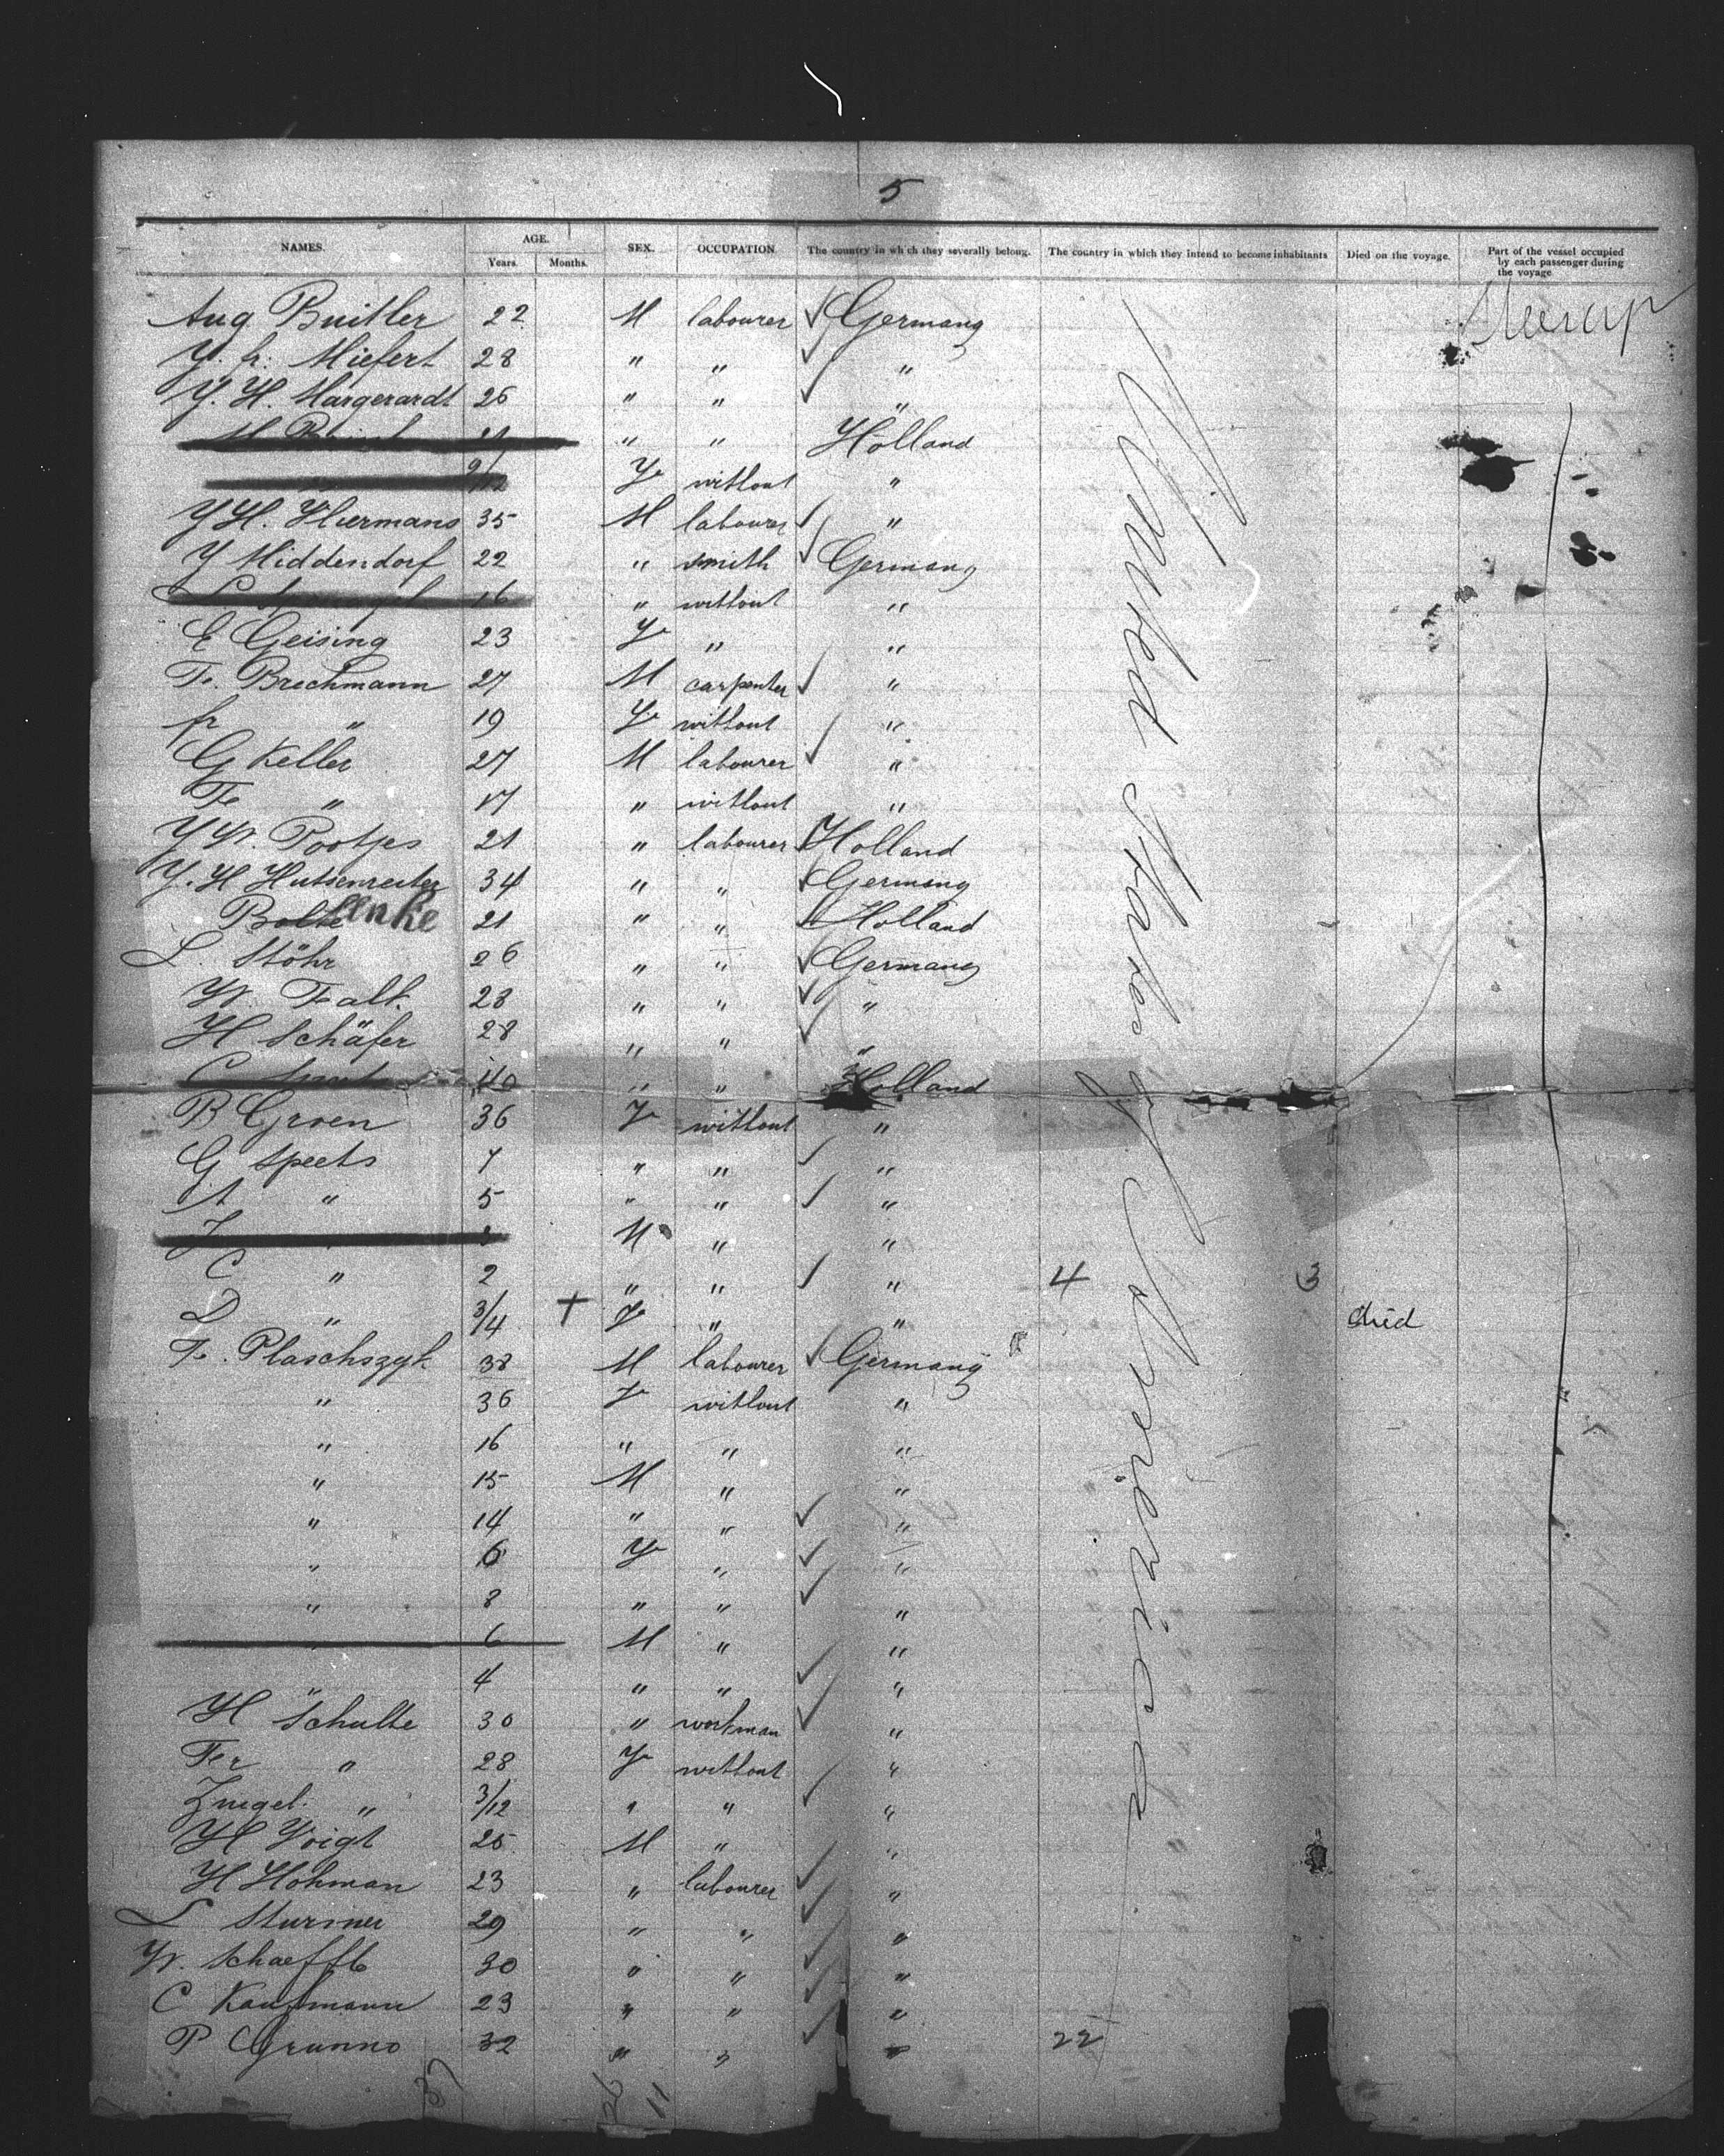 5
NAMES. AGE. Years. Months. SEX. OCCUPATION. The country in which they severally belong. The country in which they intend to become inhabitants Died on the voyage. Part of the vessel occupied by each passenger during the voyage.
Aug Buitler 22 M labourer ✓ Germany
Y. fr: Miefert 28 " " ✓ "
Y. H. Margerardt 26 " " ✓ "
" " Holland
9/12 F without "
Y H. Hiermans 35 M labourer ✓ "
Y Middendorf 22 " smith ✓ Germany
16 " without "
E Geising 23 F " "
Fr. Brechmann 27 M carpenter ✓ "
fr " 19 F without "
G Keller 27 M labourer ✓ "
Fr " 17 " without "
Y W. Pootjes 21 " labourer ✓ Holland
Y. H Hutsenreiter 34 " " ✓ Germany
Boltenke 21 " " ✓ Holland
L. Stöhr 26 " " ✓ Germany
W. Falk 23 " " ✓ "
H Schäfer 28 " " ✓ "
C 40 " " Holland
B Groen 36 F without "
G Speets 7 " " ✓ "
A " 5 " " ✓ "
M " "
C " 2 " " ✓ " 4 3
D " 3/4 + F " " died
F. Plaschszyk 38 M labourer ✓ Germany
" 36 F without "
" 16 " " "
" 15 M " "
" 14 " " ✓ "
" 6 F " ✓ "
" 8 " " ✓ "
" 6 M " "
" 4 " " ✓ "
H Schulte 30 " workman ✓ "
Fer " 28 F without "
" 3/12 " " ✓ "
H Voigt 25 M " "
H Hohman 23 " labourer ✓ "
L Sturmer 29 " " ✓ "
W. Schaeffle 30 " " ✓ "
C Kaufmann 23 " " ✓ "
P Grunno 32 " " ✓ " 22
37 26 11
United States of America